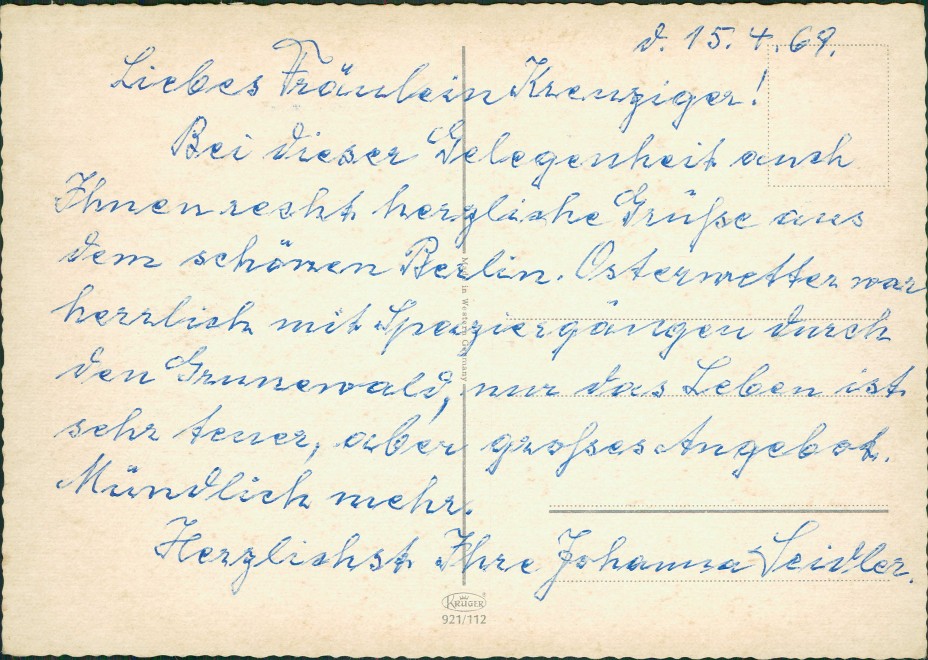 d. 15.4.69.
Liebes Fräulein Kreuziger!
Bei dieser Gelegenheit auch
Ihnen recht herzliche Grüße aus
dem schönen Berlin. Osterwetter war
herrlich mit Spaziergängen durch
den Grunewald, nur das Leben ist
sehr teuer, aber großes Angebot.
Mündlich mehr.
Herzlichst Ihre Johanna Seidler.
Made in Western Germany
KRÜGER
921/112